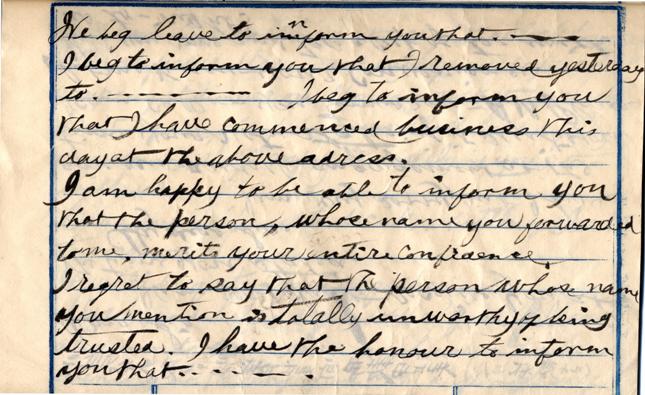 We beg leave to innform you that. ——
I beg to inform you that I removed yesterday
to. ———— I beg to inform you
that I have commenced business this
day at the above adress.
I am happy to be able to inform you
that the person, whose name you forwarded
to me, merits your entire confidence.
I regret to say that the person whose name
you mention is totally unworthy of being
trusted. I have the honour to inform
you that. . — — .